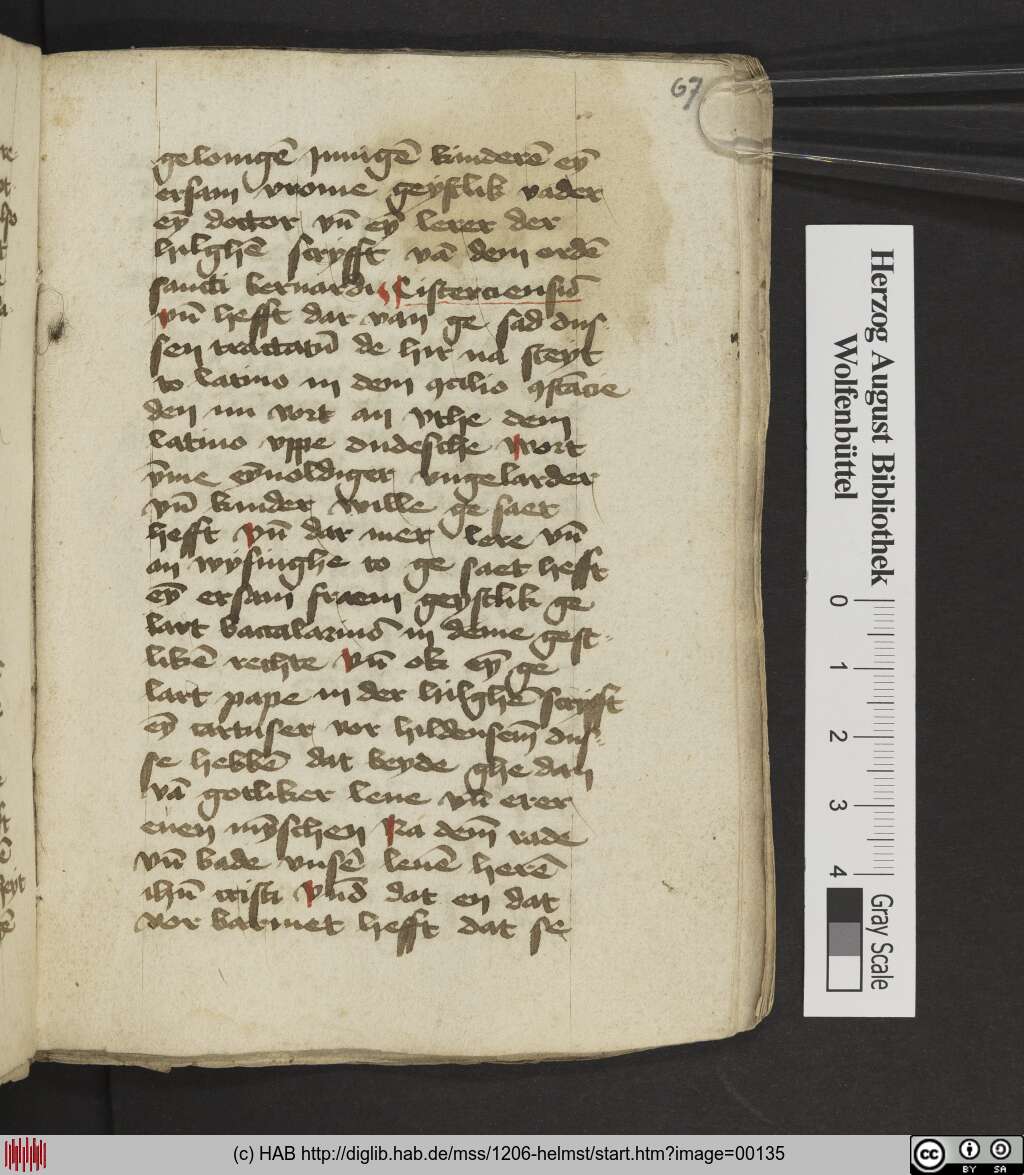 67
gelouigē jnnigē kinderē eȳ
ersam vrome geystlik vader
eȳ doctor vn̄ eȳ lerer der
hilghē scryfft vā dem ordē
sancti bernardi Cisterciensiū
vn̄ hefft dar van ge sad dus
sen tractatū de hir na steyt
to latino in dem ꝯcilio ꝯstācie
den nu vort an vthe dem
latino vppe dudesche wort
v̄me eȳuoldiger vngelarder
vn̄ kinder wille ge saet
hefft vn̄ dar mer lere vn̄
an wysinghe to ge saet hefft
eȳ ersam fraem geystlik ge
lart baccalariuus in deme gest-
likē rechte vn̄ ok eȳ ge
lart pape in der hilghē scryfft
eȳ cartuser vor hildensem̄ dus-
se hebbē dat beyde ghe dan
vā gotliker leue vn̄ erer
euen mȳschen Na dem̄ rade
vn̄ bade vnsē leuē herē
ihū cristi vn̄ dat en dat
vor barmet hefft dat se
Herzog August Bibliothek
Wolfenbüttel
0 1 2 3 4
Gray Scale
(c) HAB http://diglib.hab.de/mss/1206-helmst/start.htm?image=00135
cc BY SA